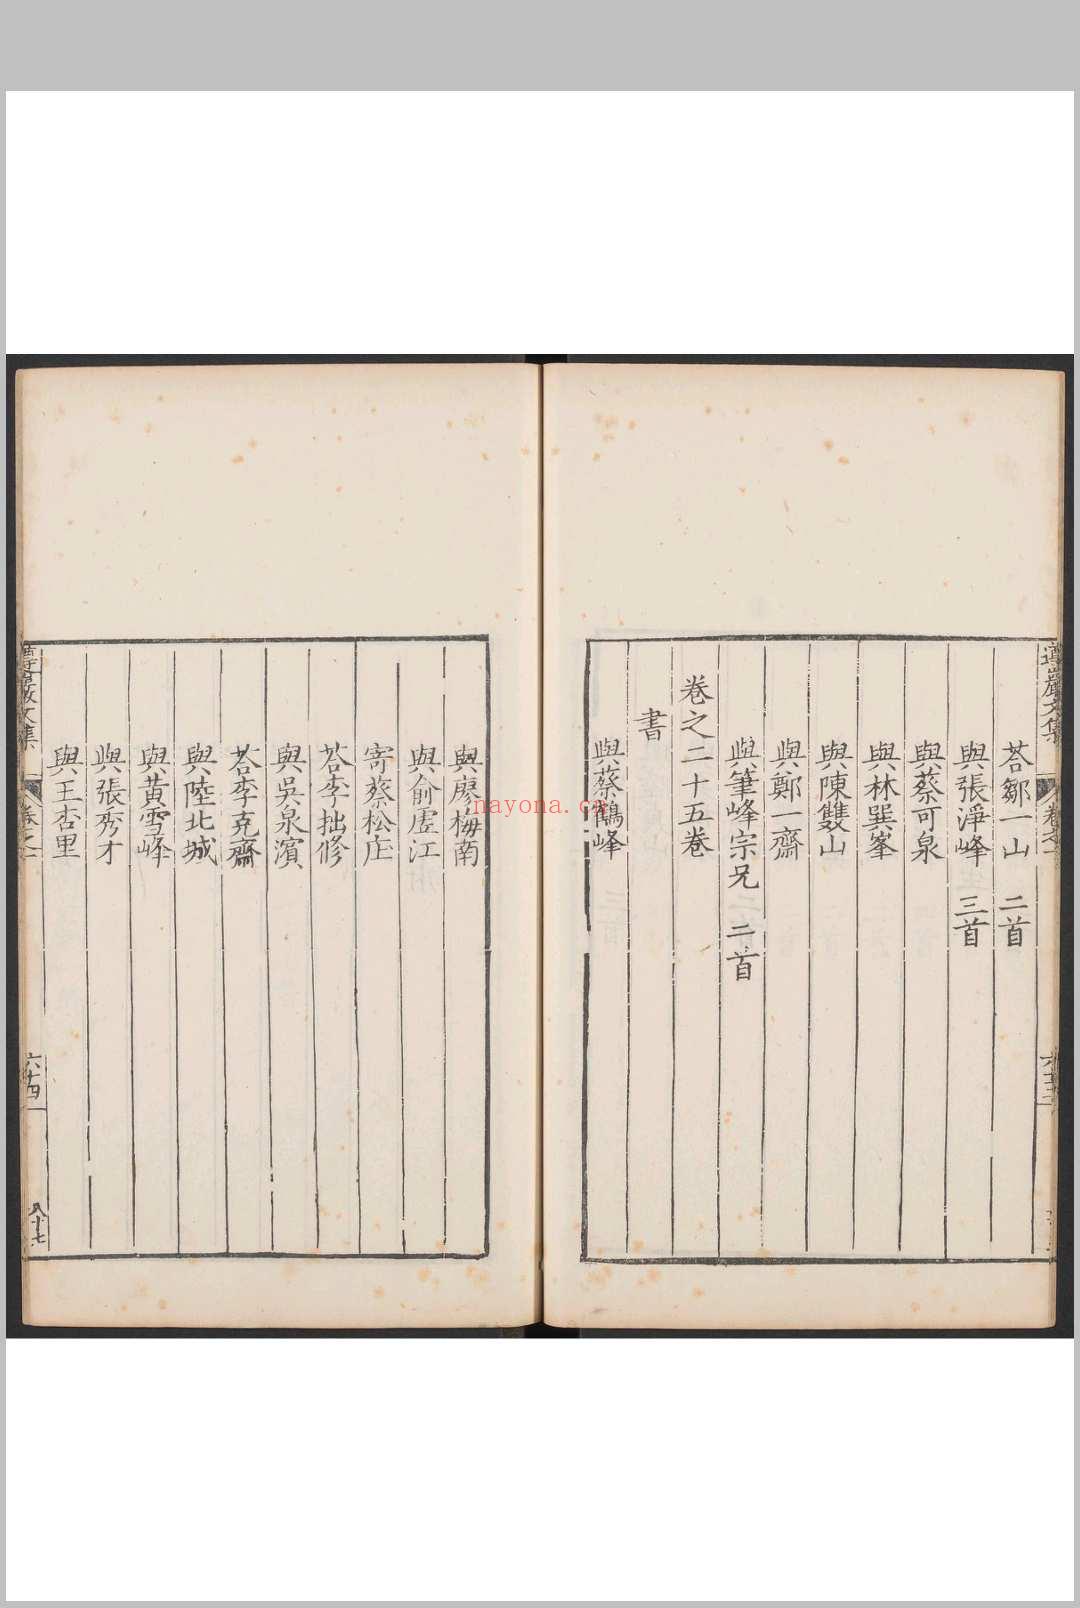 遵巖文集
卷之一
荅鄒一山 二首
與張淨峰 三首
與蔡可泉
與林巽峯
與陳雙山
與鄭一齋
與筆峰宗兄 二首
卷之二十五卷
書
與蔡鶴峰
與廖梅南
與俞虛江
寄蔡松庄
荅李拙修
與吳泉濵
荅李克齋
與陸北城
與黃雪峰
與張秀才
與王杏里
遵巖文集
卷之一
六十四
八十七
nayona.cn